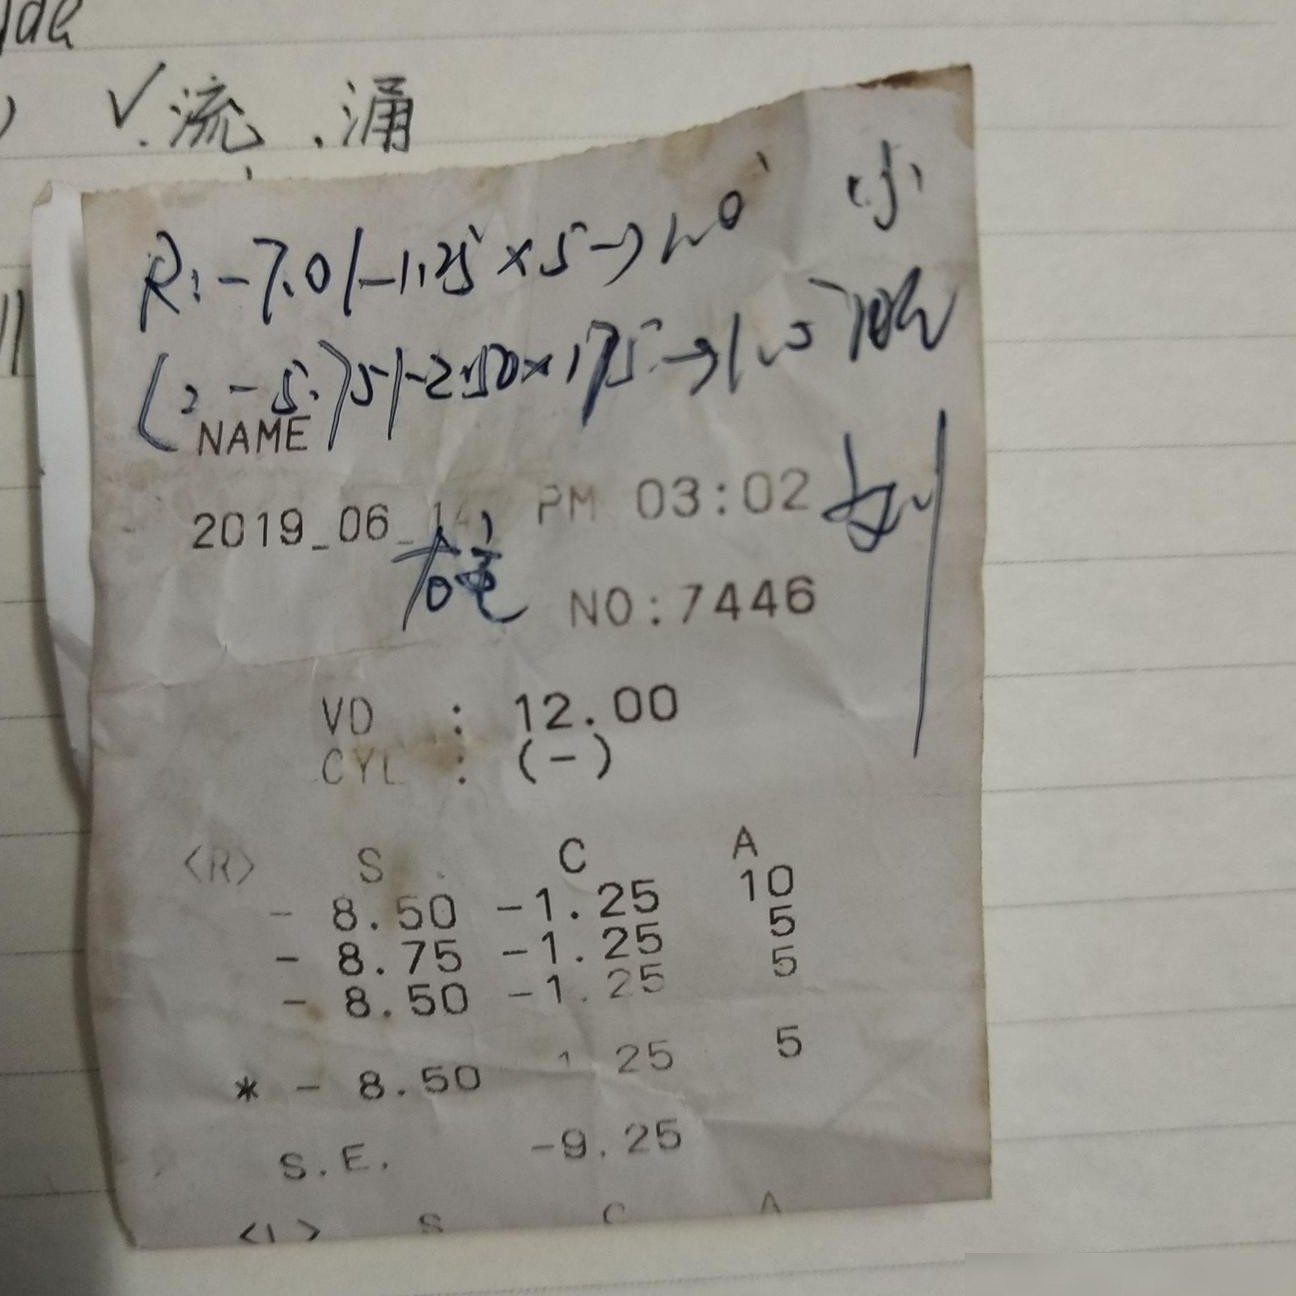 √.流 .涌
R: -7.0/-1.25×5→1.0
L: -5.75/-2.50×175→1.0
NAME
2019_06_14 PM 03:02
NO:7446
VD : 12.00
CYL : (-)
<R> S C A
- 8.50 -1.25 10
- 8.75 -1.25 5
- 8.50 -1.25 5
* - 8.50 -1.25 5
S.E. -9.25
<L> S C A